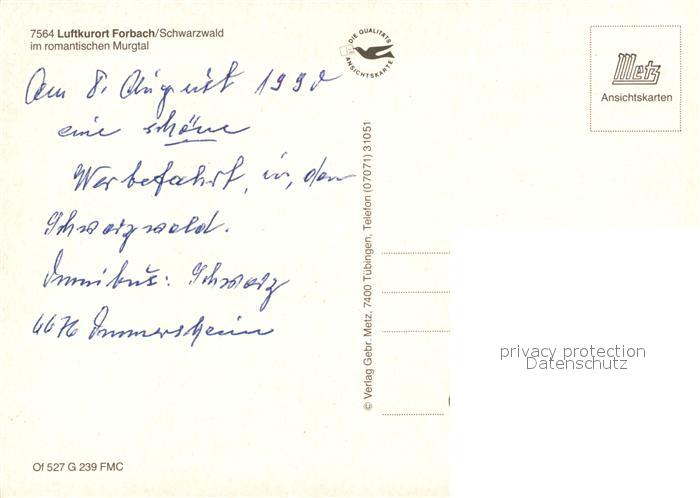 7564 Luftkurort Forbach/Schwarzwald
im romantischen Murgtal
Am 8. August 1990
eine schöne
Werbefahrt in den
Schwarzwald.
Omnibus: Schwarz
6676 Ommersheim
Of 527 G 239 FMC
DIE QUALITÄTS
ANSICHTSKARTE
© Verlag Gebr. Metz, 7400 Tübingen, Telefon (07071) 31051
Metz
Ansichtskarten
privacy protection
Datenschutz